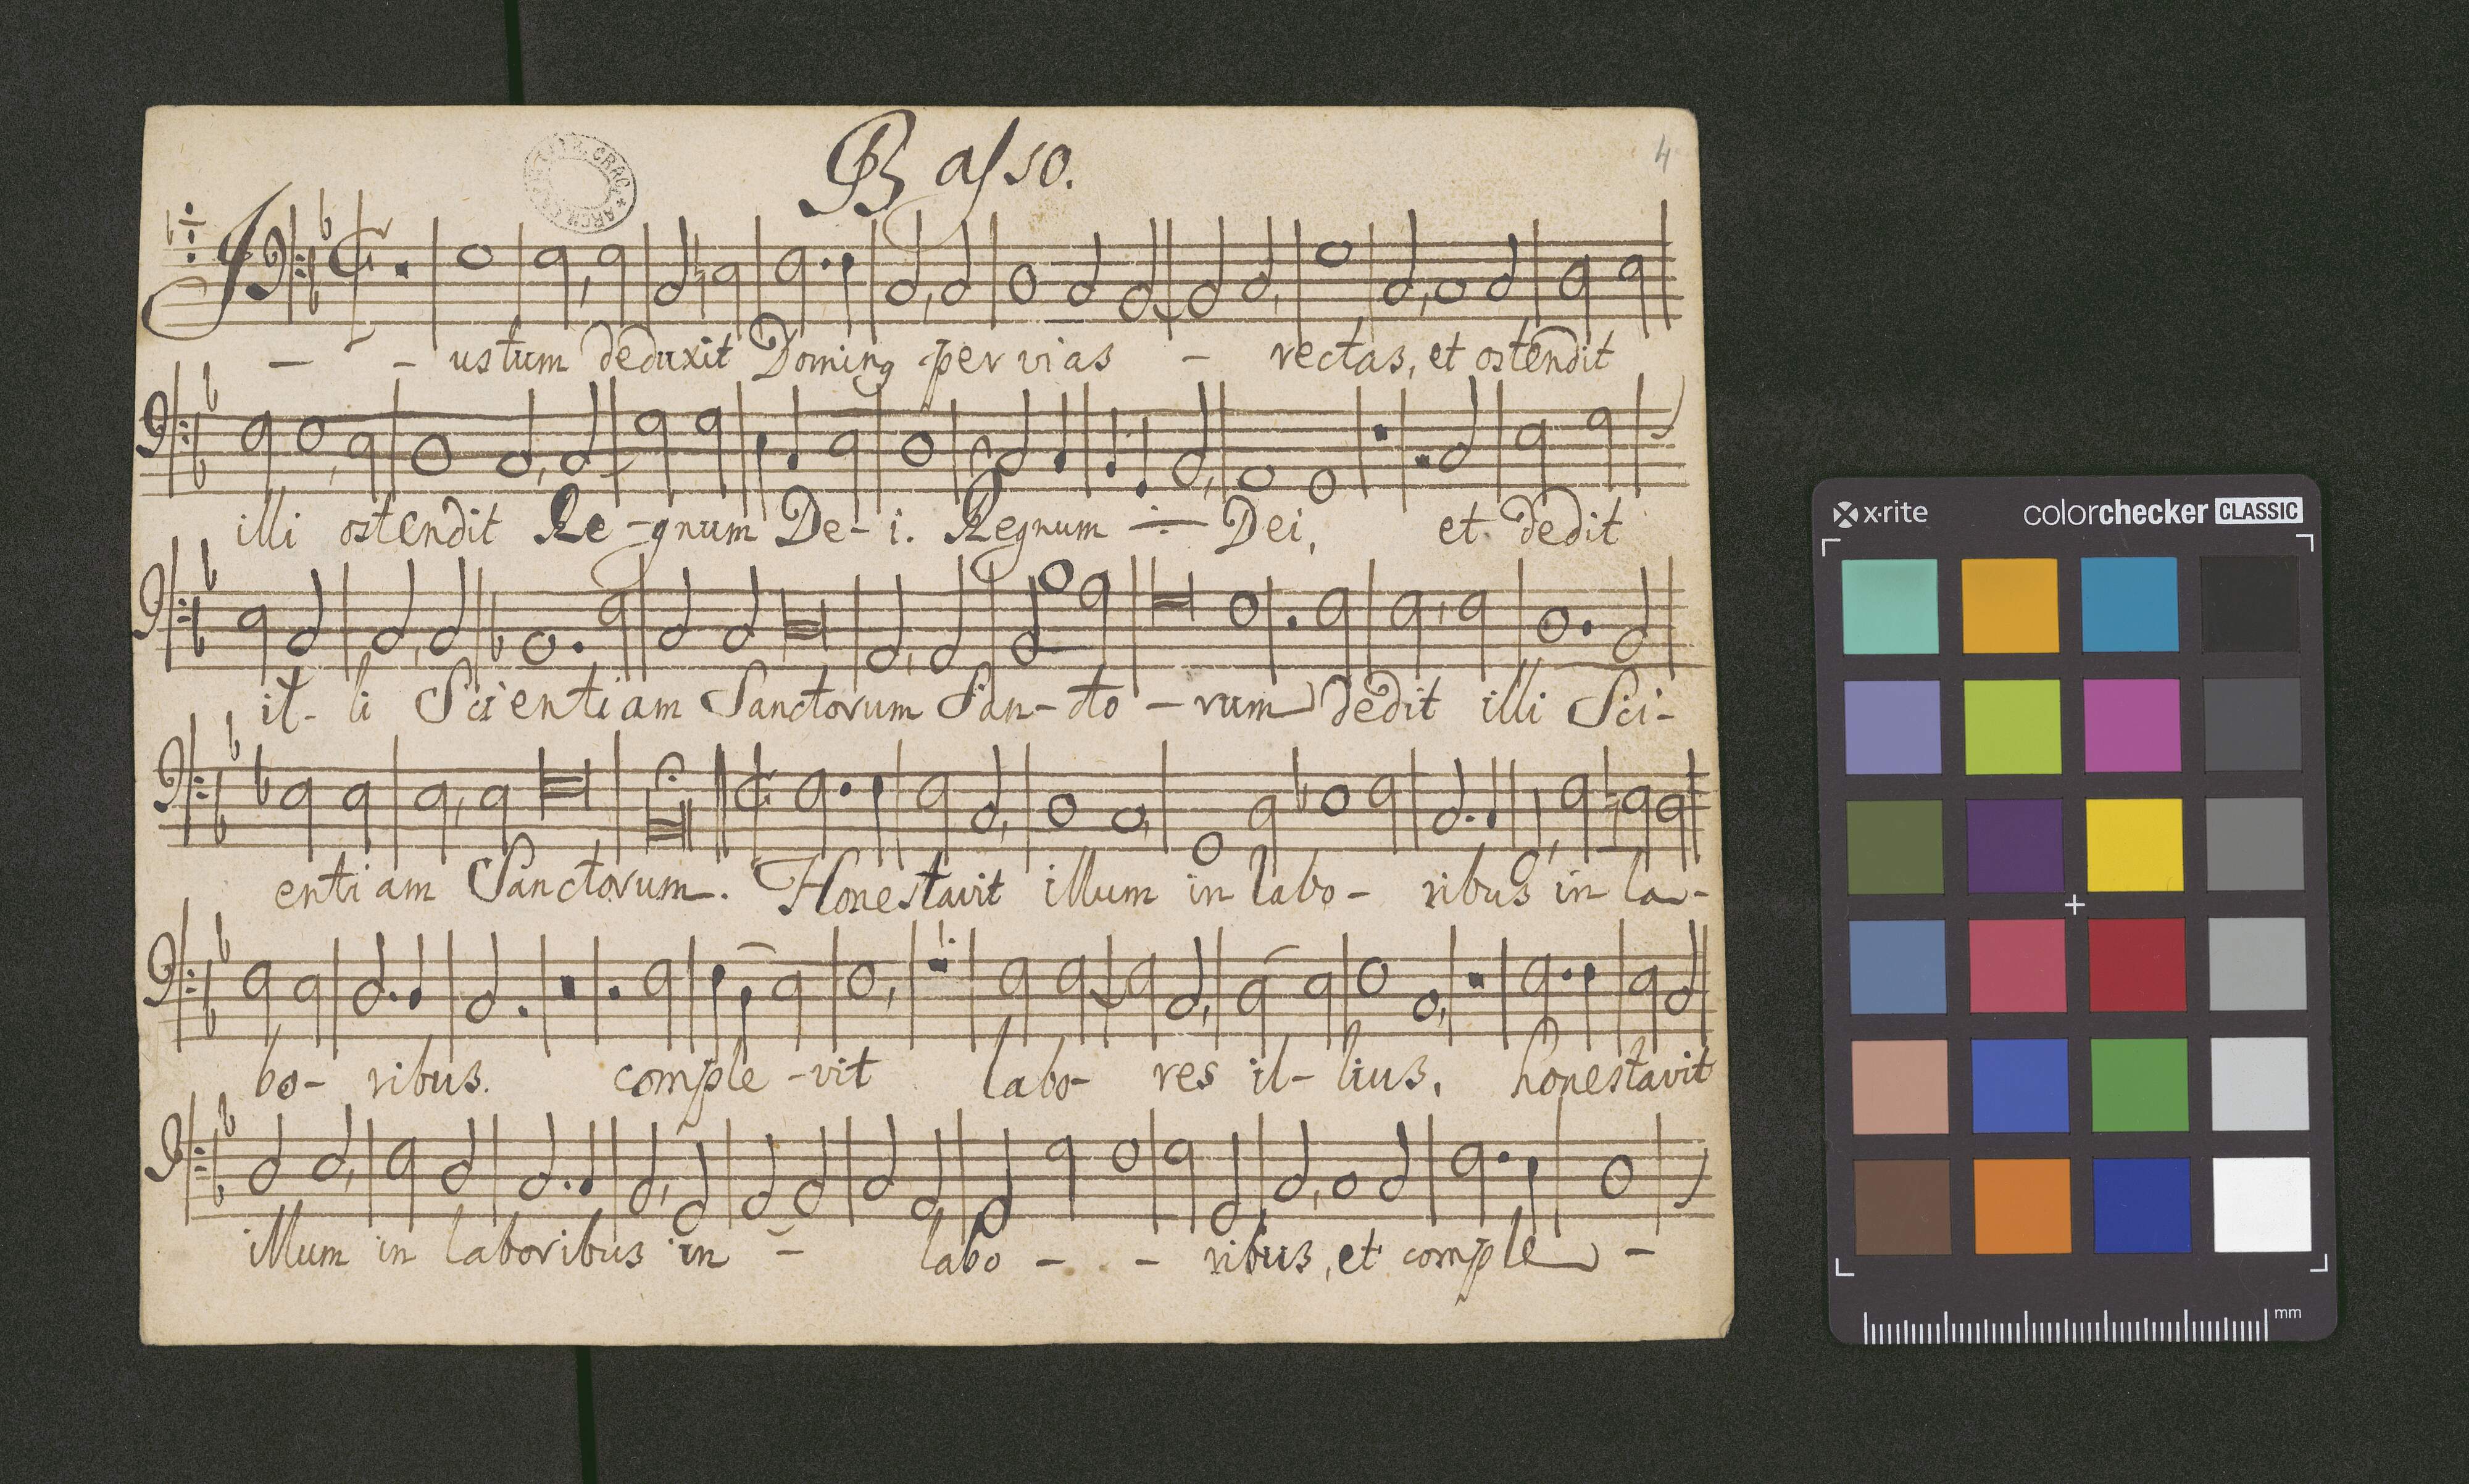 Basso.
4
Justum deduxit Doming per vias - rectas, et ostendit
illi ostendit Re-gnum De-i. Regnum Dei, et dedit
il-li Scientiam Sanctorum San-cto-rum dedit illi Sci-
entiam Sanctorum. Honestavit illum in labo- ribus in la-
bo- ribus. comple-vit labo- res il-lius, honestavit
illum in laboribus in - labo - - ribus, et comple -
x·rite colorchecker CLASSIC
mm